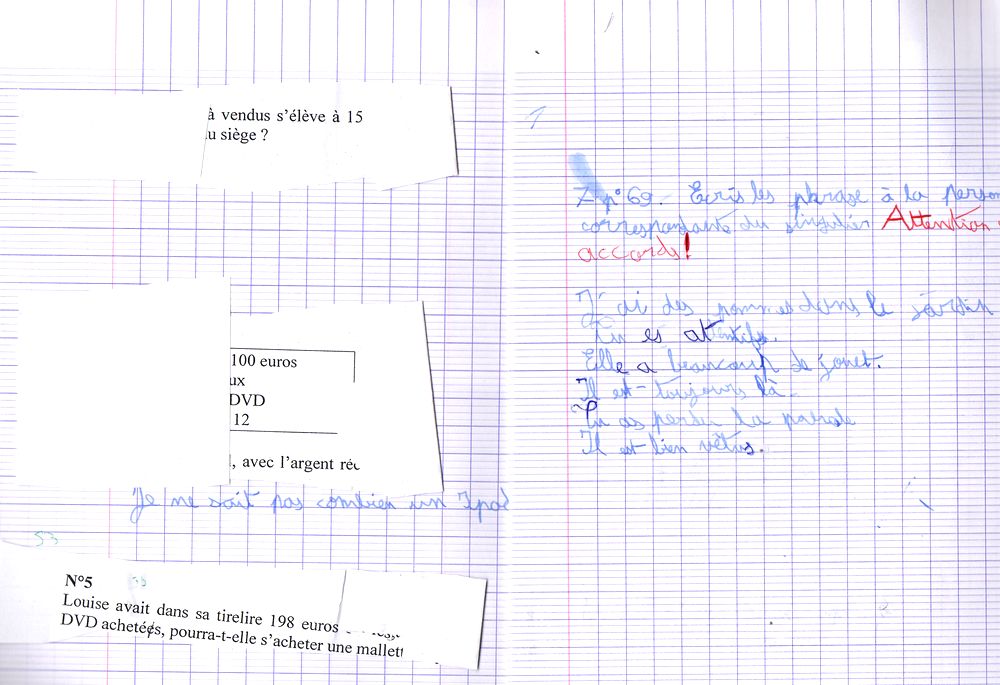 à vendus s'élève à 15
u siège ?
100 euros
ux
DVD
12
, avec l'argent réc
Je ne sait pas combien un Ipod
53
N°5
Louise avait dans sa tirelire 198 euros
DVD achetéés, pourra-t-elle s'acheter une mallett
7 p° 69. Ecris les phrase à la person
correspondante du singulier Attention
accords!
J'ai des pommes dans le jardin
Tu es attentifs.
Elle a beaucoup de jouet.
Il est toujours là.
Tu as perdu la parole
Il est bien vêtus.